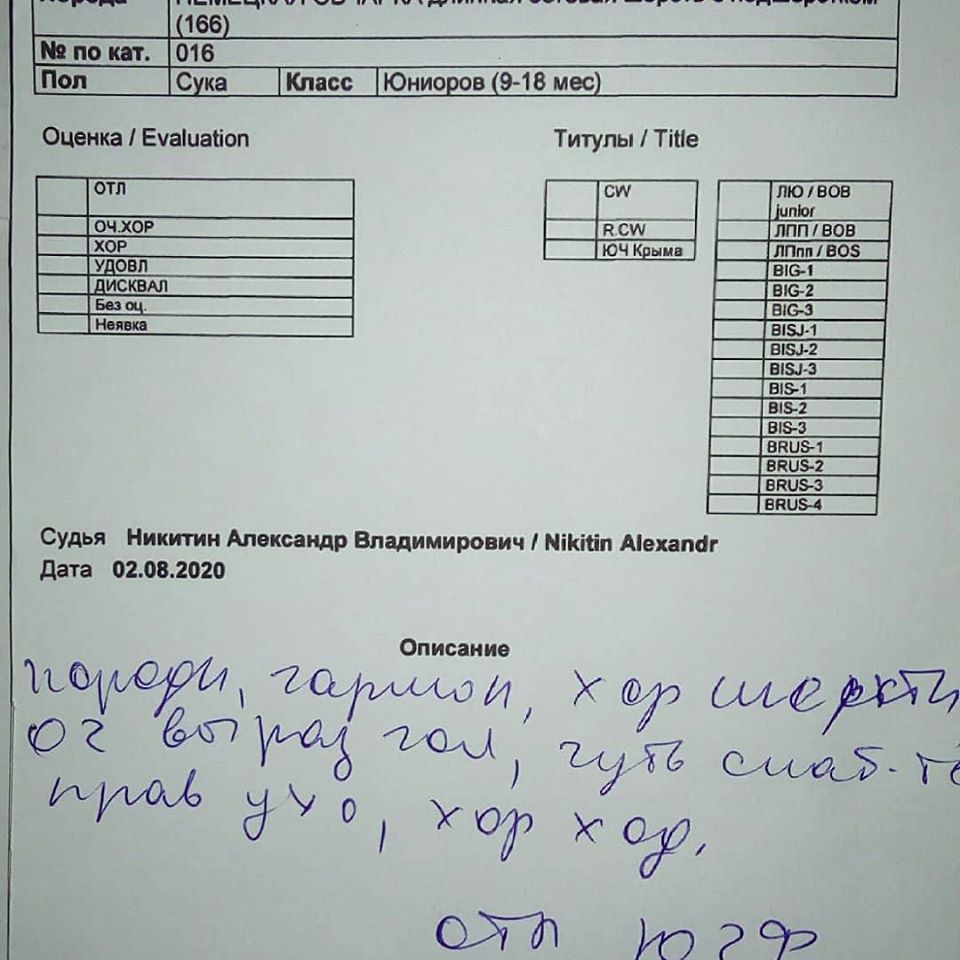 (166)
№ по кат. 016
Пол Сука Класс Юниоров (9-18 мес)
Оценка / Evaluation
Титулы / Title
ОТЛ
ОЧ.ХОР
ХОР
УДОВЛ
ДИСКВАЛ
Без оц.
Неявка
CW
R.CW
ЮЧ Крыма
ЛЮ / BOB
junior
ЛПП / BOB
ЛПпп / BOS
BIG-1
BIG-2
BIG-3
BISJ-1
BISJ-2
BISJ-3
BIS-1
BIS-2
BIS-3
BRUS-1
BRUS-2
BRUS-3
BRUS-4
Судья Никитин Александр Владимирович / Nikitin Alexandr
Дата 02.08.2020
Описание
породн, гармон, хор шерсти
оч выраз гол, чуть слаб-
прав ухо, хор ход.
отл ЮЧФ